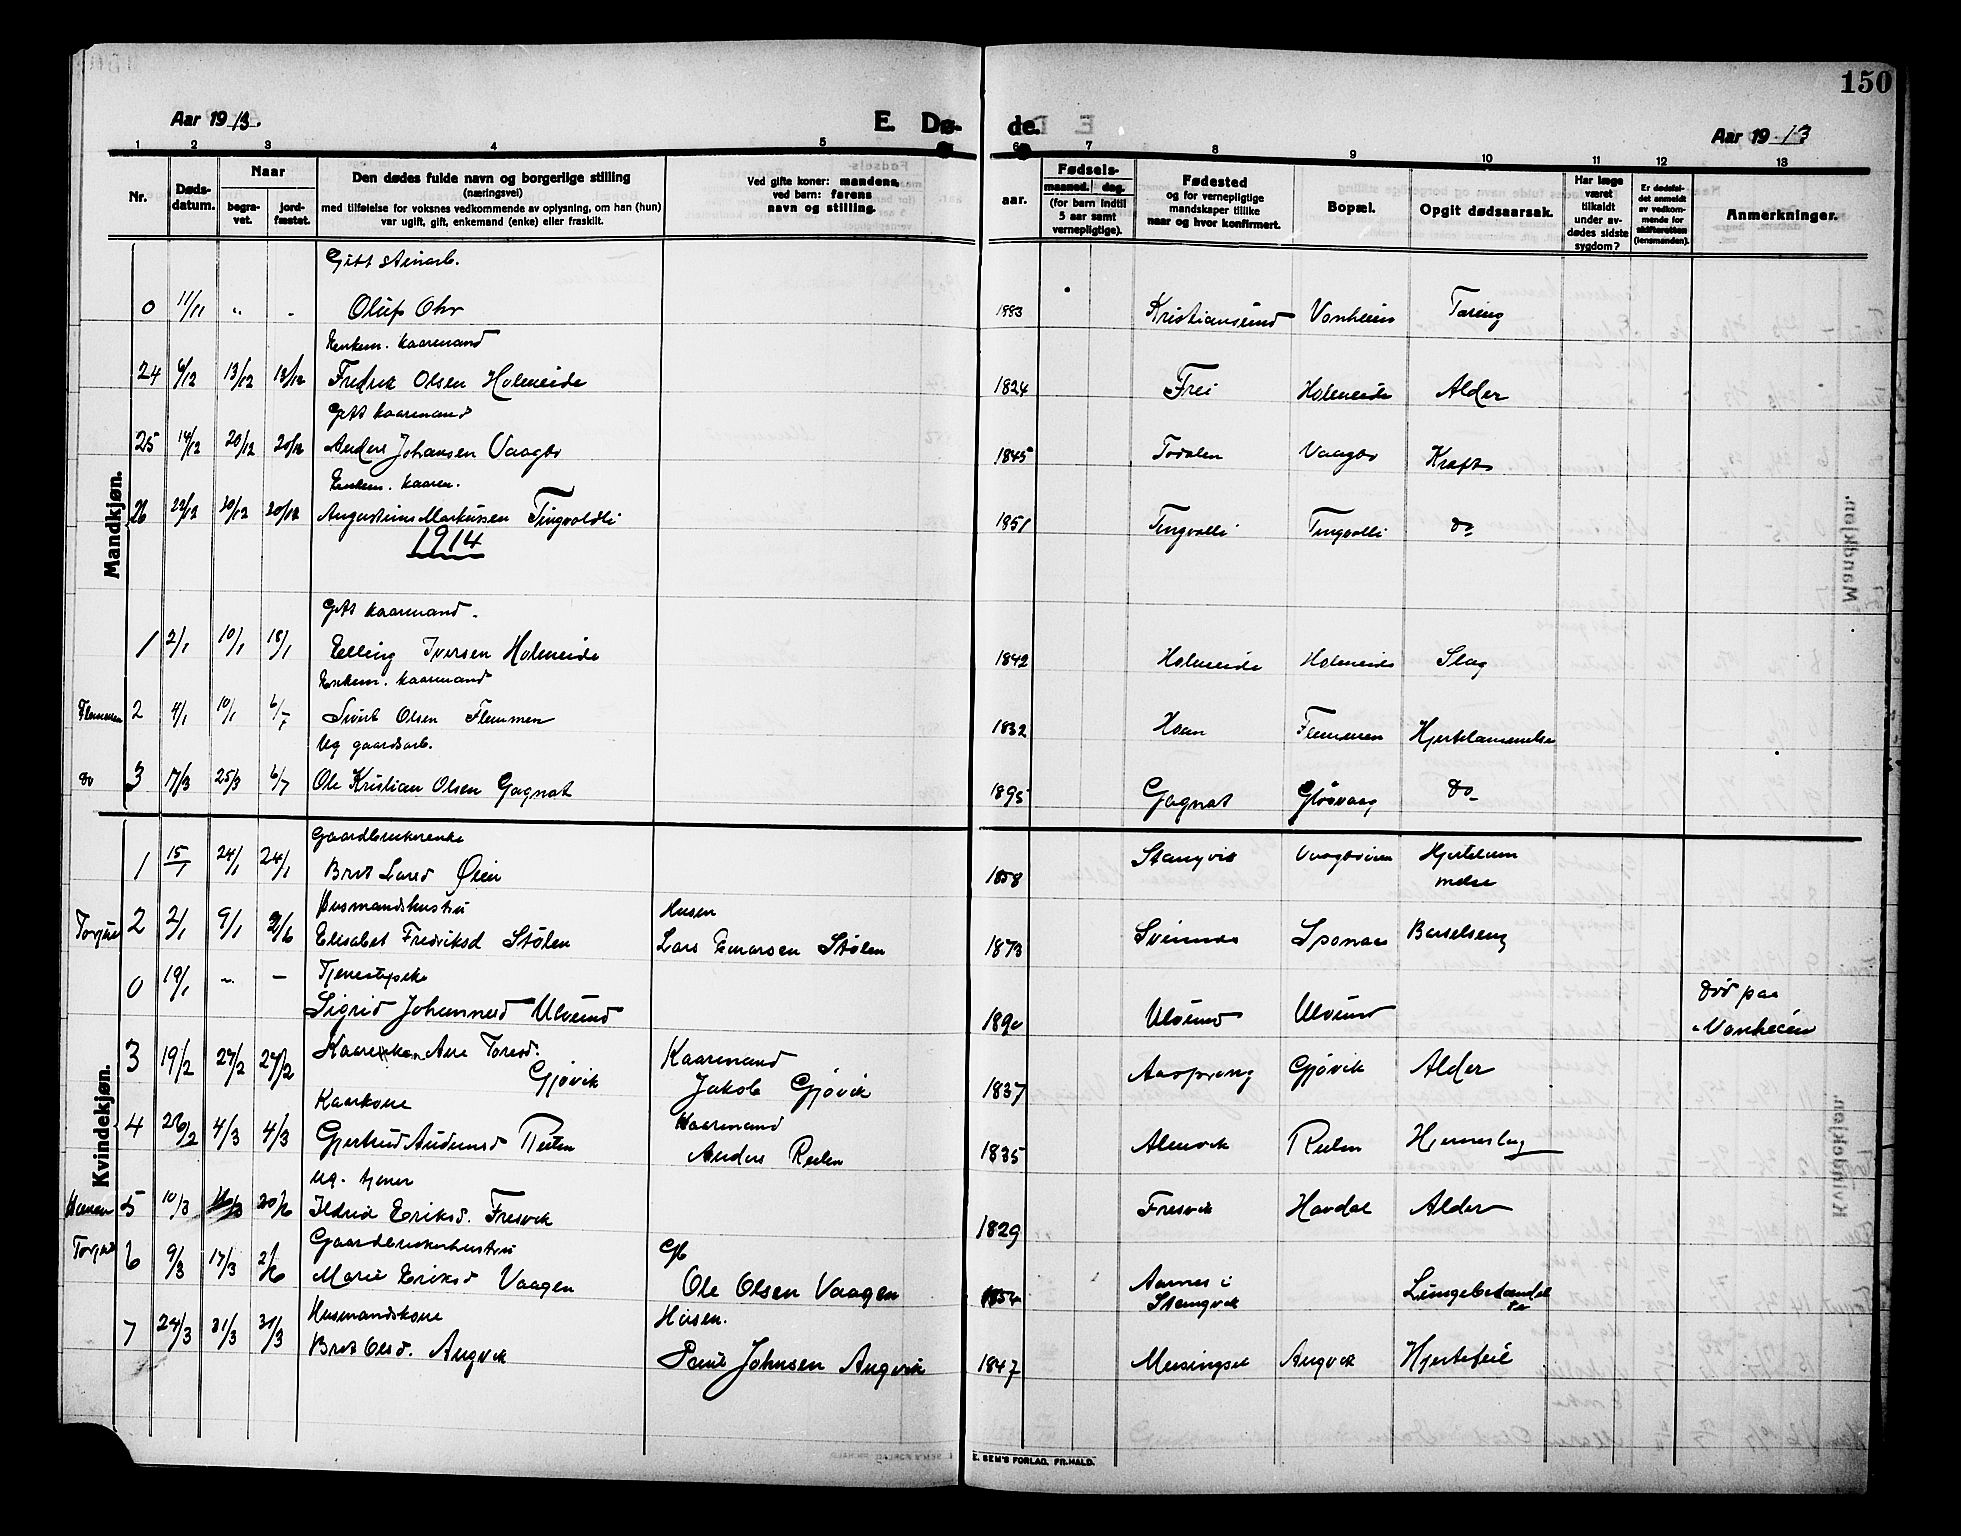 150
Aar 1913.
E. Dø-
de.
Aar 1913
1 2 3 4 5 6 7 8 9 10 11 12 13
Nr.
Døds-
datum.
Naar
begra-
vet.
jord-
fæstet.
Den dødes fulde navn og borgerlige stilling
(næringsvei)
med tilføielse for voksnes vedkommende av oplysning, om han (hun)
var ugift, gift, enkemand (enke) eller fraskilt.
Ved gifte koner: mandens,
ved børn: farens
navn og stilling.
aar.
Fødsels-
maaned. dag.
(for barn indtil
5 aar samt
vernepligtige).
Fødested
og for vernepligtige
mandskaper tillike
naar og hvor konfirmert.
Bopæl.
Opgit dødsaarsak.
Har læge
været
tilkaldt
under av-
dødes sidste
sygdom?
Er dødsfal-
det anmeldt
av vedkom-
mende for
skifteretten
(lensmanden).
Anmerkninger.
Mandkjøn.
Gift
0 11/11 " - Oluf Ohr 1883 Kristiansund Vonheim Tæring
Enkem. kaarmand
24 6/12 13/12 13/12 Fredrik Olsen Holmeide 1824 Frei Holmeide Alder
Gift kaarmand
25 14/12 20/12 20/12 Anders Johansen Vaagbø 1845 Todalen Vaagbø Kræft
Enkem. kaarm.
26 22/12 30/12 30/12 Augustinus Markussen Tingvoldli 1851 Tingvolli Tingvolli do
1914
Gift kaarmand.
1 2/1 10/1 18/1 Elling Iversen Holmeide 1842 Holmeide Holmeide Slag
Enkem. kaarmand
Flemmen 2 4/1 10/1 6/7 Sivert Olsen Flemmen 1832 Hoem Flemmen Hjertelammelse
Ug gaardsarb.
do 3 17/3 25/3 6/7 Ole Kristian Olsen Gagnat 1895 Gagnat Gløsvaag do
Kvindekjøn.
Gaardbrukerenke
1 15/1 24/1 24/1 Brit Larsd Øien 1858 Stangvik Hjertelam
melse
Husmandshustru Husm
2 2/1 9/1 Elisabet Fredriksd Stølen Lars Einarsen Stølen 1873 Barselseng
Tjenestepike
0 19/1 - - Sigrid Johannesd Ulvund 1890 Ulvund Ulvund Død paa
Vonheim
3 19/2 27/2 27/2 Kaarenken Ane Toresd. Kaarmand
Gjøvik Jakob Gjøvik 1837 Aasprong Gjøvik Alder
Kaarkone Kaarmand
4 26/2 4/3 4/3 Gjertrud Andersd Reiten Anders Reiten 1835 Almvik Reiten Hjerneslag
Ug. tjener
5 10/3 20/6 Ildrid Eriksd. Fresvik 1829 Fresvik Havdal Alder
Gaardbrukerhustru Gb
6 9/3 17/3 2/6 Marit Eriksd Vaagen Ole Olsen Vaagen 1854 Aarnes i
Stangvik Lungebetændel
se
Husmandskone Husm.
7 24/3 31/3 31/3 Brit Olsd. Angvik Poul Johnsen Angvik 1847 Meisingset Angvik Hjertefeil
E. SEM'S FORLAG, FR.HALD.